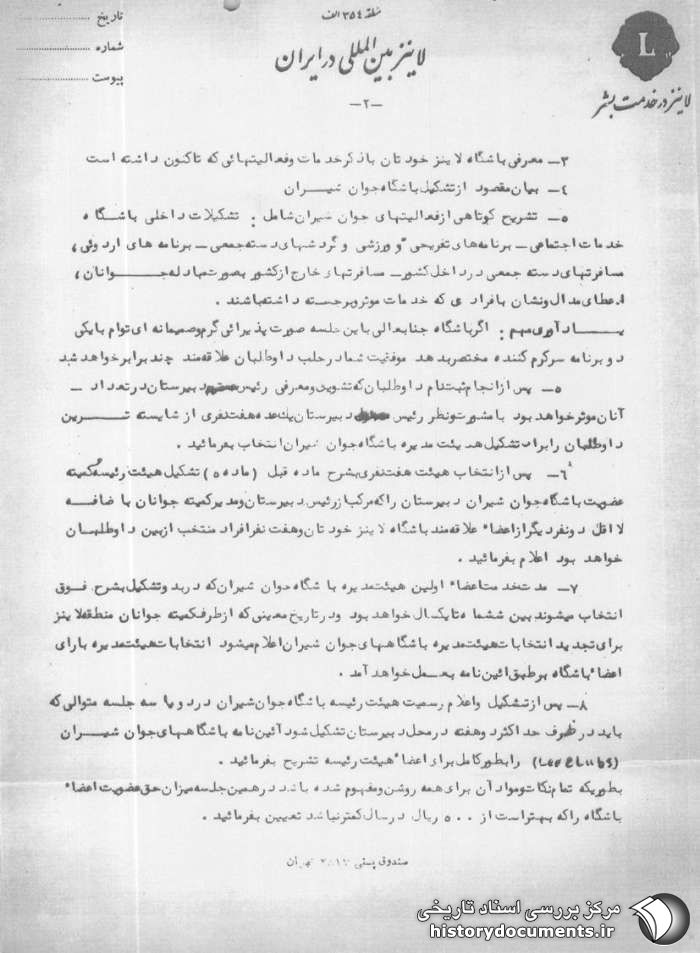 منطقه ۳۵٤ الف
تاریخ
شماره
پیوست
لاینز بین‌المللی در ایران
L
لاینز در خدمت بشر
-۲-
۳- معرفی باشگاه لاینز خودتان با ذکر خدمات و فعالیتهائی که تاکنون داشته است
٤- بیان مقصود از تشکیل باشگاه جوان شیران
۵- تشریح کوتاهی از فعالیتهای جوان شیران شامل : تشکیلات داخلی باشگاه
خدمات اجتماعی - برنامه‌های تفریحی و ورزشی و گردشهای دسته جمعی - برنامه های اردوئی ،
مسافرتهای دسته جمعی در داخل کشور - مسافرتهای خارج از کشور بصورت مبادله جوانان ،
اعطای مدال و نشان بافرادی که خدمات موثر و برجسته داشته باشند .
یادآوری مهم : اگر باشگاه جنابعالی باین جلسه صورت پذیرائی گرم و صمیمانه ای توام با یکی
دو برنامه سرگرم کننده مختصر بدهد موفقیت شما در جلب داوطلبان علاقه مند چند برابر خواهد شد
۵- پس از انجام ثبت نام داوطلبان که تشویق و معرفی رئیس دبیرستان در تعداد -
آنان موثر خواهد بود با مشورت و نظر رئیس دبیرستان یک عده هفت نفری از شایسته ترین
داوطلبان را برای تشکیل هیئت مدیره باشگاه جوان شیران انتخاب بفرمائید .
٦- پس از انتخاب هیئت هفت نفری بشرح ماده قبل (ماده ۵) تشکیل هیئت رئیسه و کمیته
عضویت باشگاه جوان شیران دبیرستان را که مرکب از رئیس دبیرستان و مدیر کمیته جوانان باضافه
لااقل دو نفر دیگر از اعضاء علاقه مند باشگاه لاینز خودتان و هفت نفر افراد منتخب از بین داوطلبان
خواهد بود اعلام بفرمائید .
۷- مدت خدمت اعضاء اولین هیئت مدیره باشگاه جوان شیران که در بدو تشکیل بشرح فوق
انتخاب میشوند بین ششماه تا یکسال خواهد بود و در تاریخ معینی که از طرف کمیته جوانان منطقه لاینز
برای تجدید انتخابات هیئت مدیره باشگاههای جوان شیران اعلام میشود انتخابات هیئت مدیره با رای
اعضاء باشگاه بر طبق ائین نامه بعمل خواهد آمد .
۸- پس از تشکیل و اعلام رسمیت هیئت رئیسه باشگاه جوان شیران در دو یا سه جلسه متوالی که
باید در ظرف حداکثر دو هفته در محل دبیرستان تشکیل شود آئین نامه باشگاههای جوان شیران
را بطور کامل برای اعضاء هیئت رئیسه تشریح بفرمائید .
بطوریکه تمام نکات و مواد آن برای همه روشن و مفهوم شده باشد در همین جلسه میزان حق عضویت اعضاء
باشگاه را که بهتر است از ۵۰۰ ریال در سال کمتر نباشد تعیین بفرمائید .
صندوق پستی تهران
مرکز بررسی اسناد تاریخی
historydocuments.ir